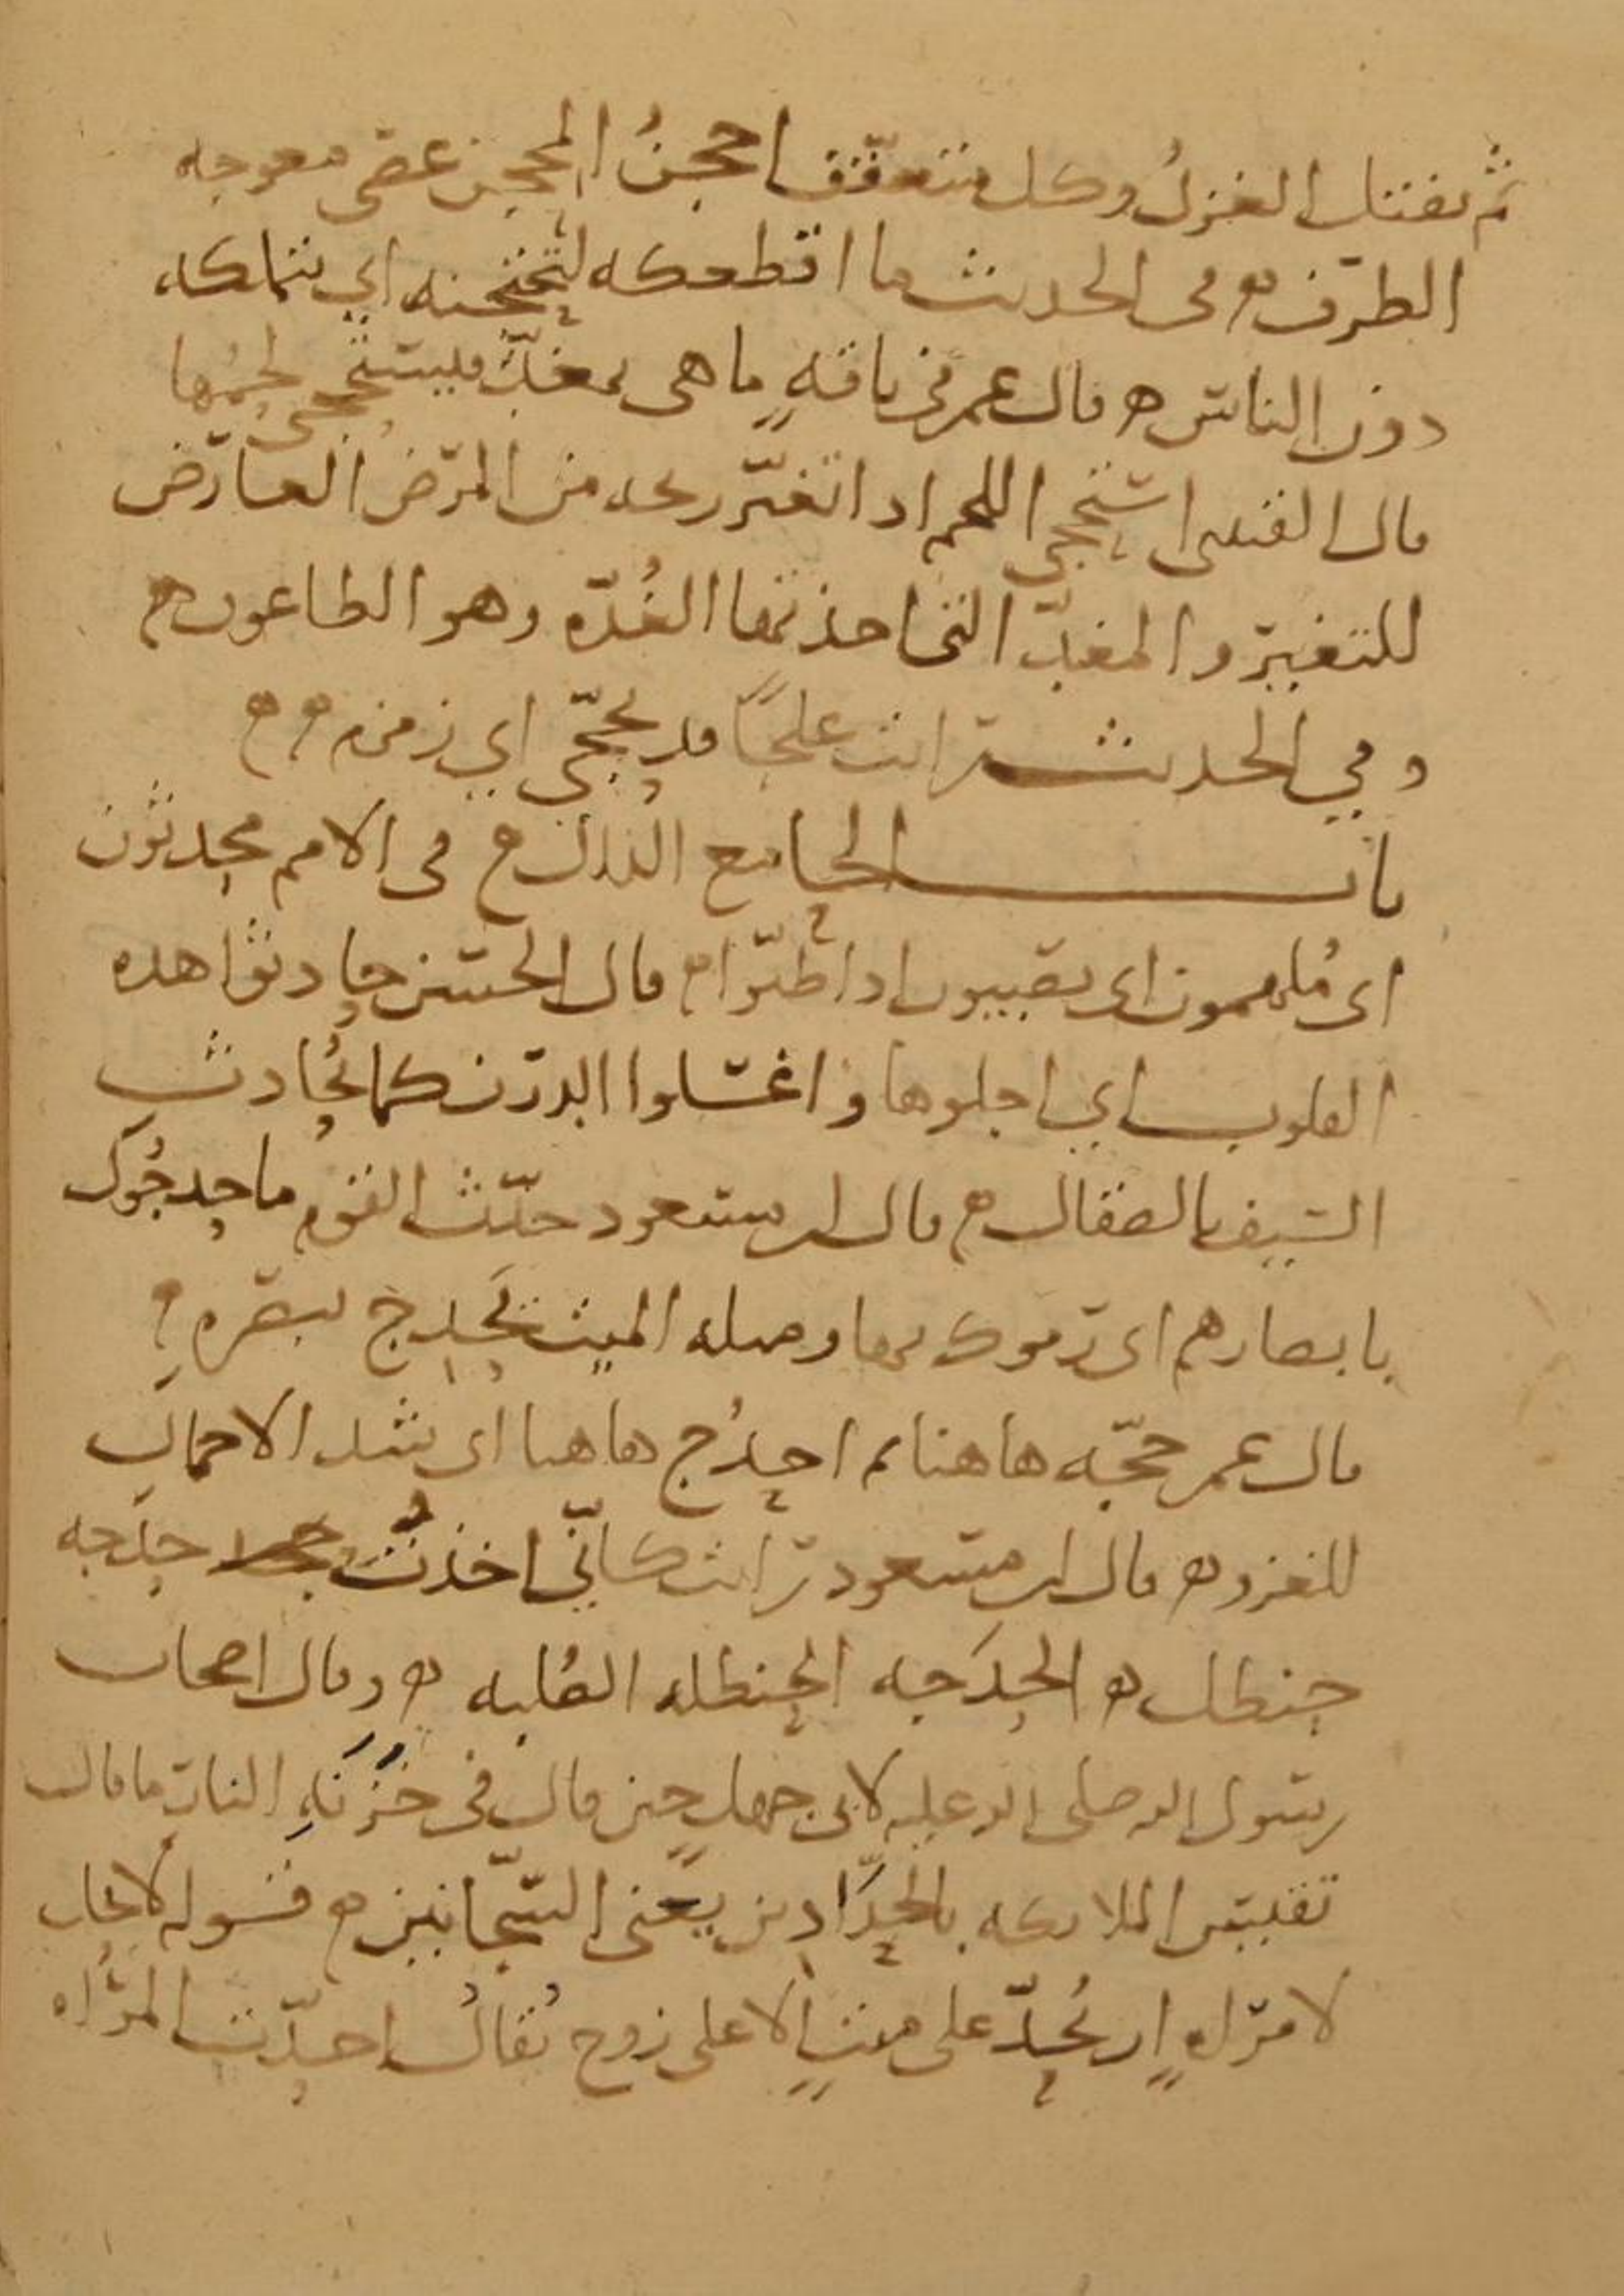 ثم يفتل الغزلُ وكل متعقّف احجنُ المحجن عصى معوجه
الطرف ه في الحديث ما اقطعكه لتحتجنه اي تتملكه
دون الناس ه قال عمر في ناقةٍ ما هي بمغدّ فيستحجى لحمُها
قال القتبى استحجى اللحم اذا تغيّر ريحه من المرض العارض
للتغير والمغدّ التي اخذتها الغُدّه وهو الطاعون ه
وفي الحديث رايت علجًا قد تحجّى اي زمزم ه ه
باب الحا مع الدال ه في الامم محدثون
اى مُلهمون اى يصيبون اذا ظنّوا ه قال الحسن حادثوا هذه
القلوب اي اجلوها واغسلوا الدرن كما يُحادث
السيف بالصقال ه قال ابن مسعود حدّث القوم ما حدجُوك
بابصارهم اى رموك بها ومثله الميت يَحدج ببصره ه
قال عمر حجّه هاهنا ثم احدُج هاهنا اى شد الاحمال
للغزو ه قال ابن مسعود رايت كانّي اخذتُ حدجه
حنظل ه الحدَجه الحنظله الصُلبه ه وقال اصحاب
رسول الله صلى الله عليه لابى جهلٍ حين قال في خَزَنَةِ النار ما قال
تقيس الملائكه بالحدّادين يعنى السجّانين ه قوله لا يحل
لامراهٍ ان تُحِدّ على ميتٍ الا على زوج يُقالُ احدّت المراه